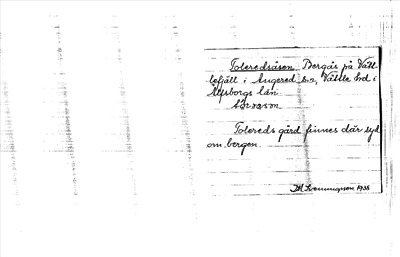 Toleredsåsen Bergås på Vätt-
lefjäll i Angered sn, Vättle hd i
Älvsborgs län.
Tolereds gård finnes där syd
om bergen.
1935